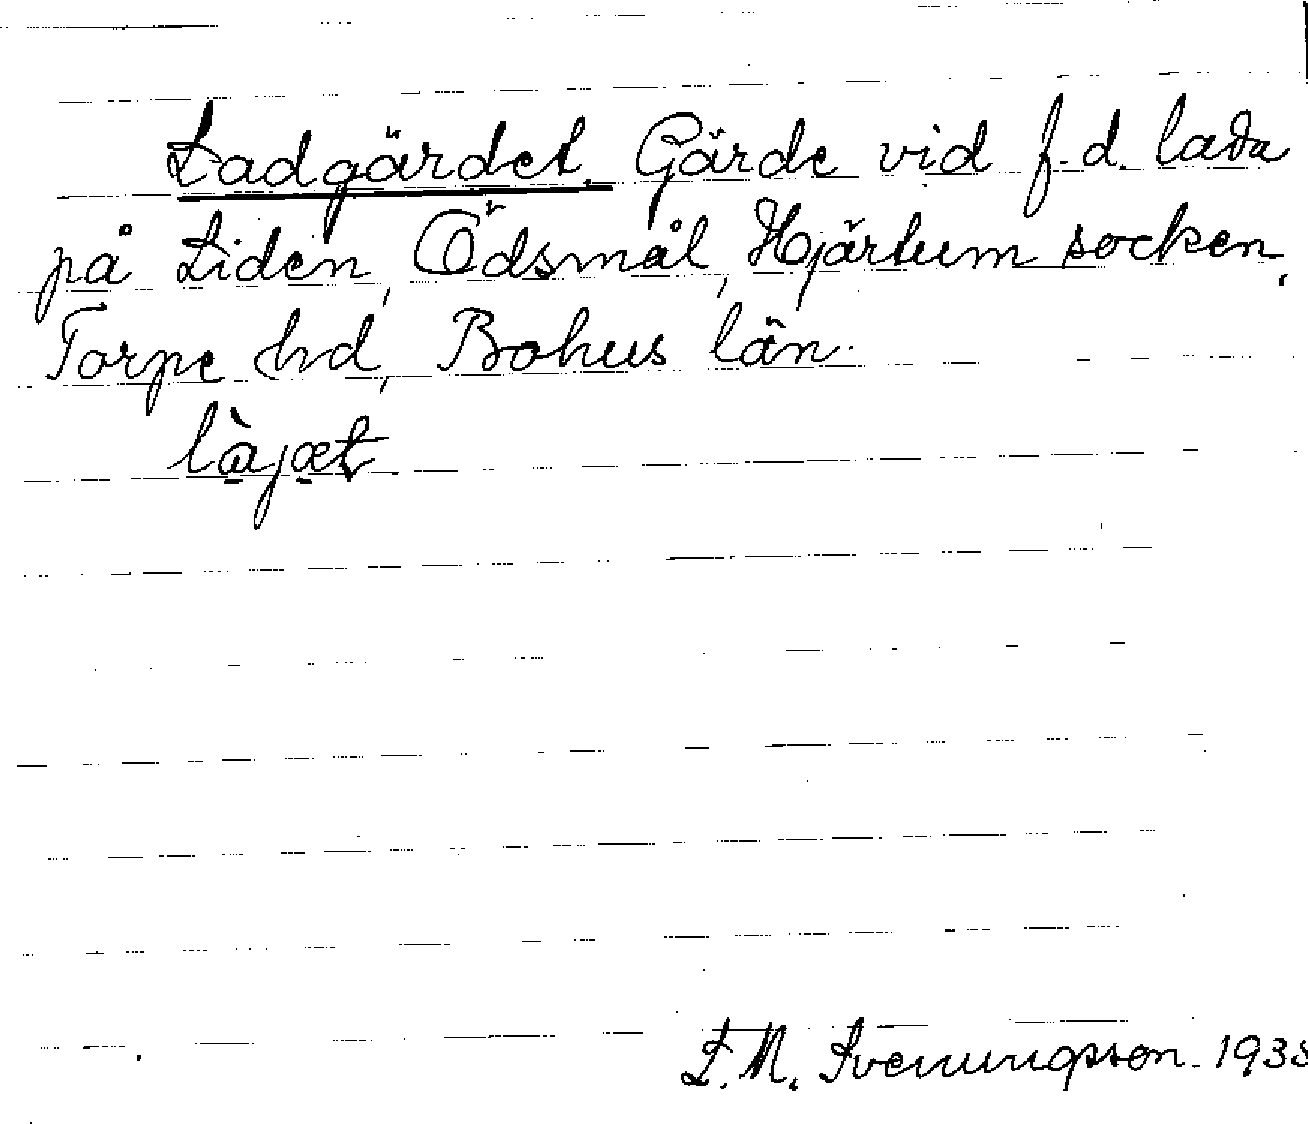 Ladgärdet. Gärde vid f.d. lada
på Liden, Ödsmål, Hjärtum socken,
Torpe hd, Bohus län.
làjæt
L. M. Svenungsson. 1933